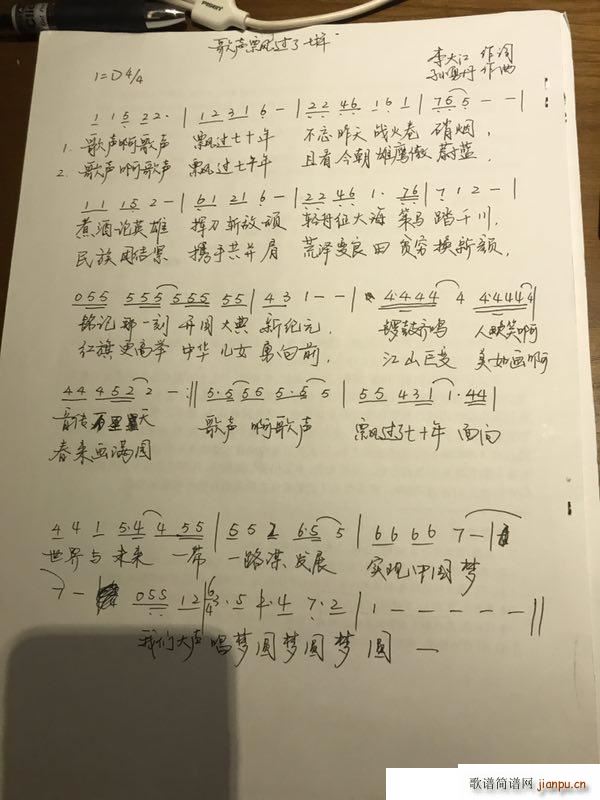 歌声飘过了七十年
1=D 4/4
李大江 作词
作曲
1 1 5 2 2· | 1 2 3 1 6 - | 2 2 4 6 1 6 1 | 7 6 5 - - |
1. 歌声啊歌声 飘过七十年 不忘昨天战火卷硝烟，
2. 歌声啊歌声 飘过七十年 且看今朝雄鹰傲蔚蓝，
1 1 1 5 2 - | 6 1 2 1 6 - | 2 2 4 6 1· 7 6 | 7 1 2 - |
煮酒论英雄 挥刀斩敌顽 轻舟征大海 策马踏千川，
民族团结紧 携手共并肩 荒泽变良田 贫穷换新颜，
0 5 5 5 5 5 5 5 5 5 5 | 4 3 1 - - | 4·4 4 4 4 4·4 4 4 4 |
铭记那一刻 开国大典 新纪元， 锣鼓齐鸣 人欢笑啊
红旗更高举 中华儿女 勇向前， 江山巨变 美如画啊
4 4 4 5 2 2 - :|| 5·5 5 5 5·5 5 | 5 5 4 3 1 1·4 4 |
音传 天 歌声啊歌声 飘过了七十年 面向
春来画满园
4 4 1 5·4 4 5 5 | 5 5 2 6·5 5 | 6 6 6 6 7 - |
世界与未来 一带 一路谋发展 实现中国梦
7 - | 0 5 5 1 2 | 6/4 3·5 2·4 7·2 | 1 - - - - - ||
我们大声唱梦圆梦圆梦圆 —
歌谱简谱网
jianpu.cn